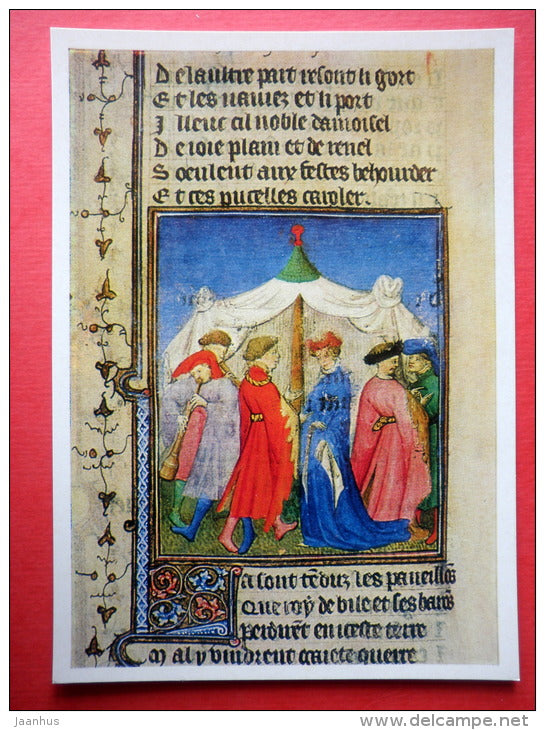 De laultre part resont li gort
Et les nauiez et li port
Illeuc cil noble damoisel
De ioie plain et de reuel
Soeulent aux festes behourder
Et ces pucelles caroler.
La sont tẽduz les paueillõs
Que roy de bile et ses barõs
Perdirẽt en iceste terre
Mal y vindrent craiete querre
jaanhus
http://www.delcampe.net